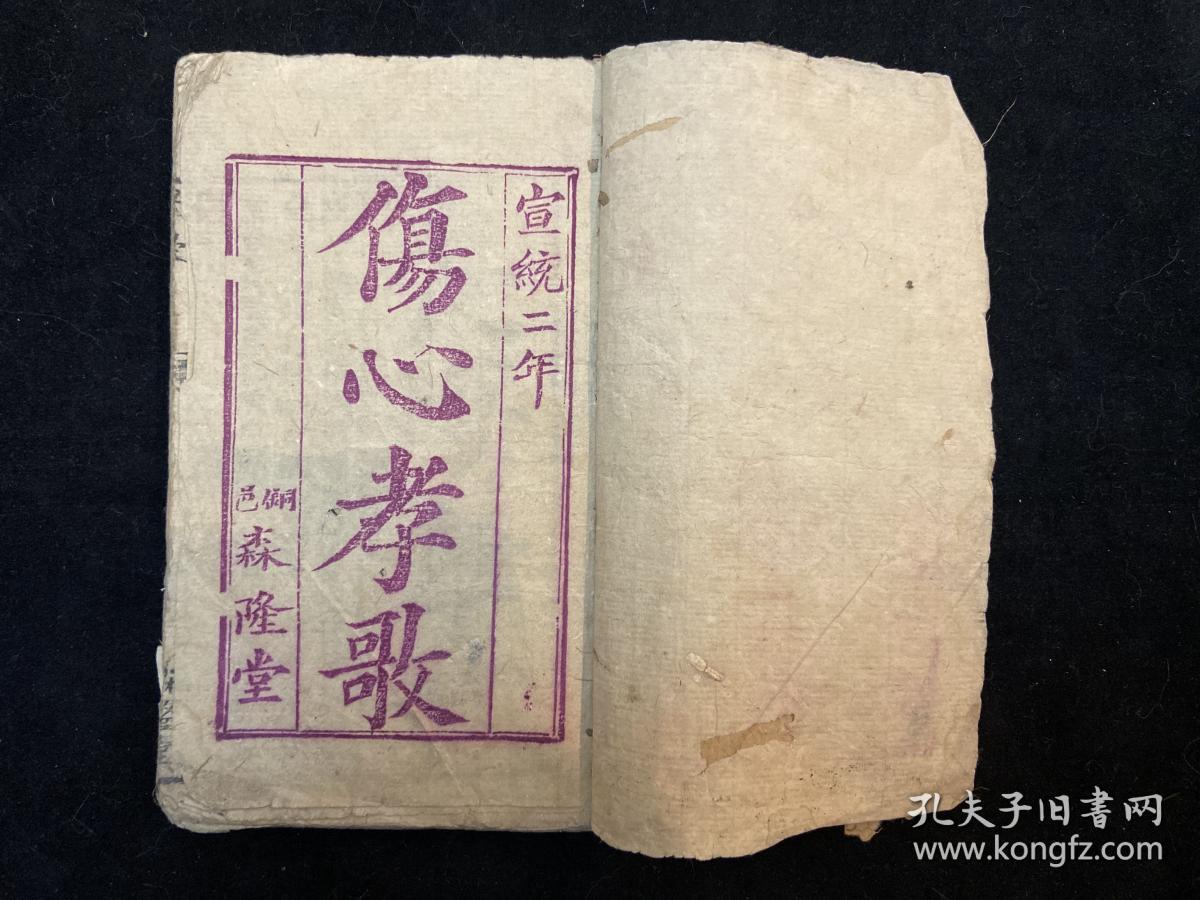 宣統二年
傷心孝歌
邑森隆堂
孔夫子旧書网
www.kongfz.com